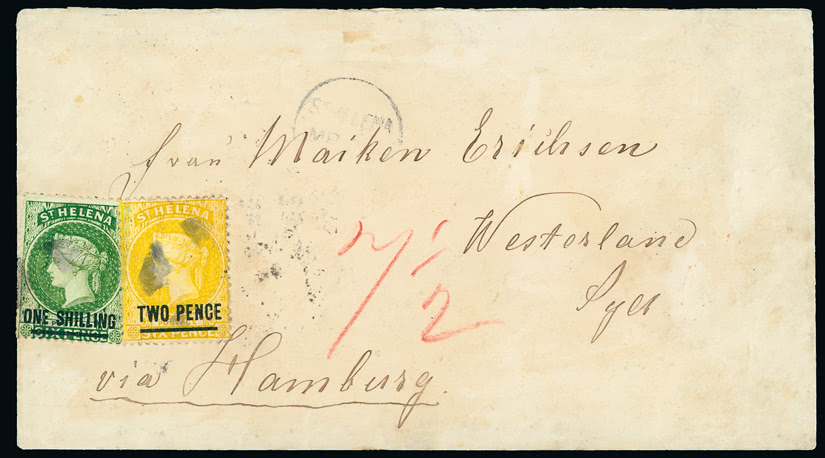 ST HELENA
Frau Maiken Erichsen
ST HELENA
ST HELENA
Westerland
7 1/2
Sylt
ONE SHILLING
TWO PENCE
SIX PENCE
SIX PENCE
via Hamburg.